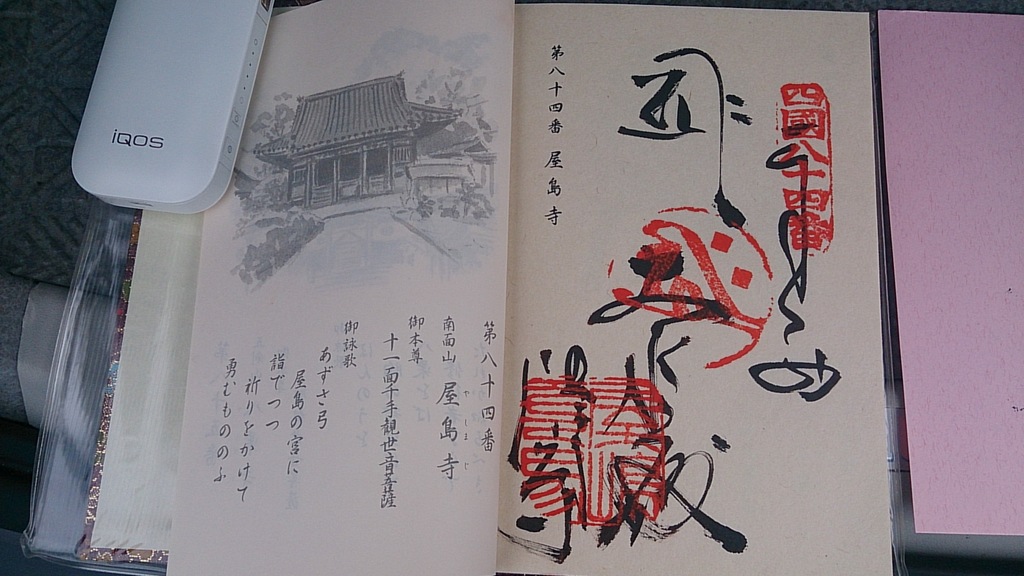 iQOS
第八十四番 屋島寺
四國八十四番
奉
第八十四番
南面山 屋島寺
やしまじ
御本尊
十一面千手観世音菩薩
御詠歌
あずさ弓
屋島の宮に
詣でつつ
祈りをかけて
勇むもののふ